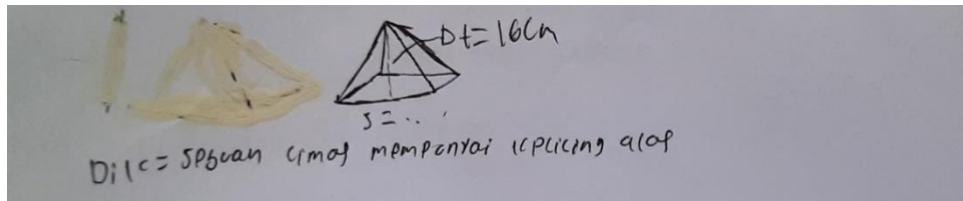 t=16Cm
s=...
Dik= sebuah limas mempunyai keliling alas